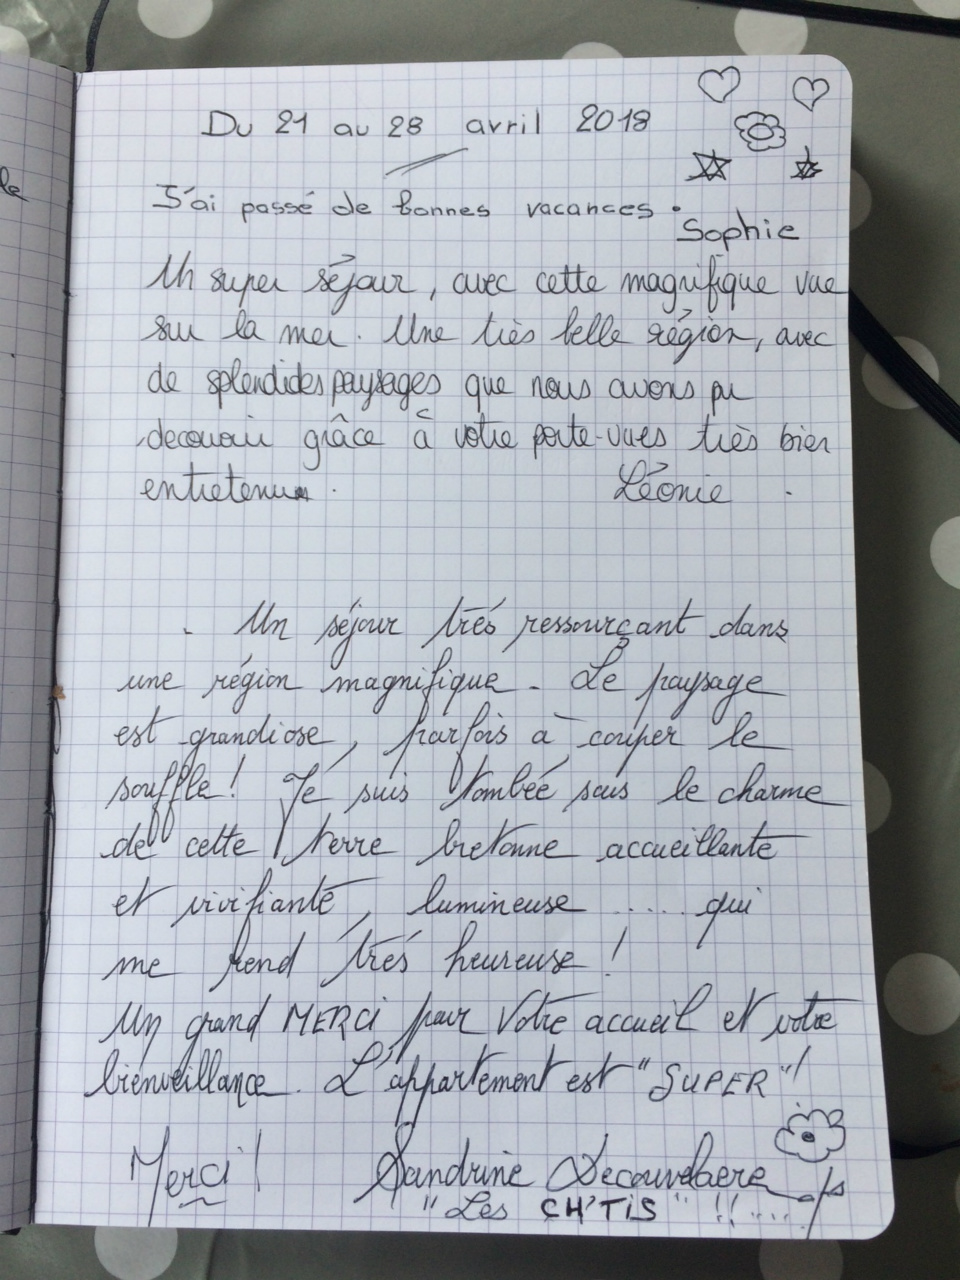 le
Du 21 au 28 avril 2018
J'ai passé de bonnes vacances.
Sophie
Un super séjour, avec cette magnifique vue
sur la mer. Une très belle région, avec
de splendides paysages que nous avons pu
decouvrir grâce à votre porte-vues très bien
entretenu.
Léonie.
Un séjour très ressourçant dans
une région magnifique. Le paysage
est grandiose, parfois à couper le
souffle! Je suis tombée sous le charme
de cette terre bretonne accueillante
et vivifiante, lumineuse .... qui
me rend très heureuse!
Un grand MERCI pour votre accueil et votre
bienveillance. L'appartement est "SUPER"!
Merci! Sandrine Decouvelaere
"Les CH'TIS" !! ....